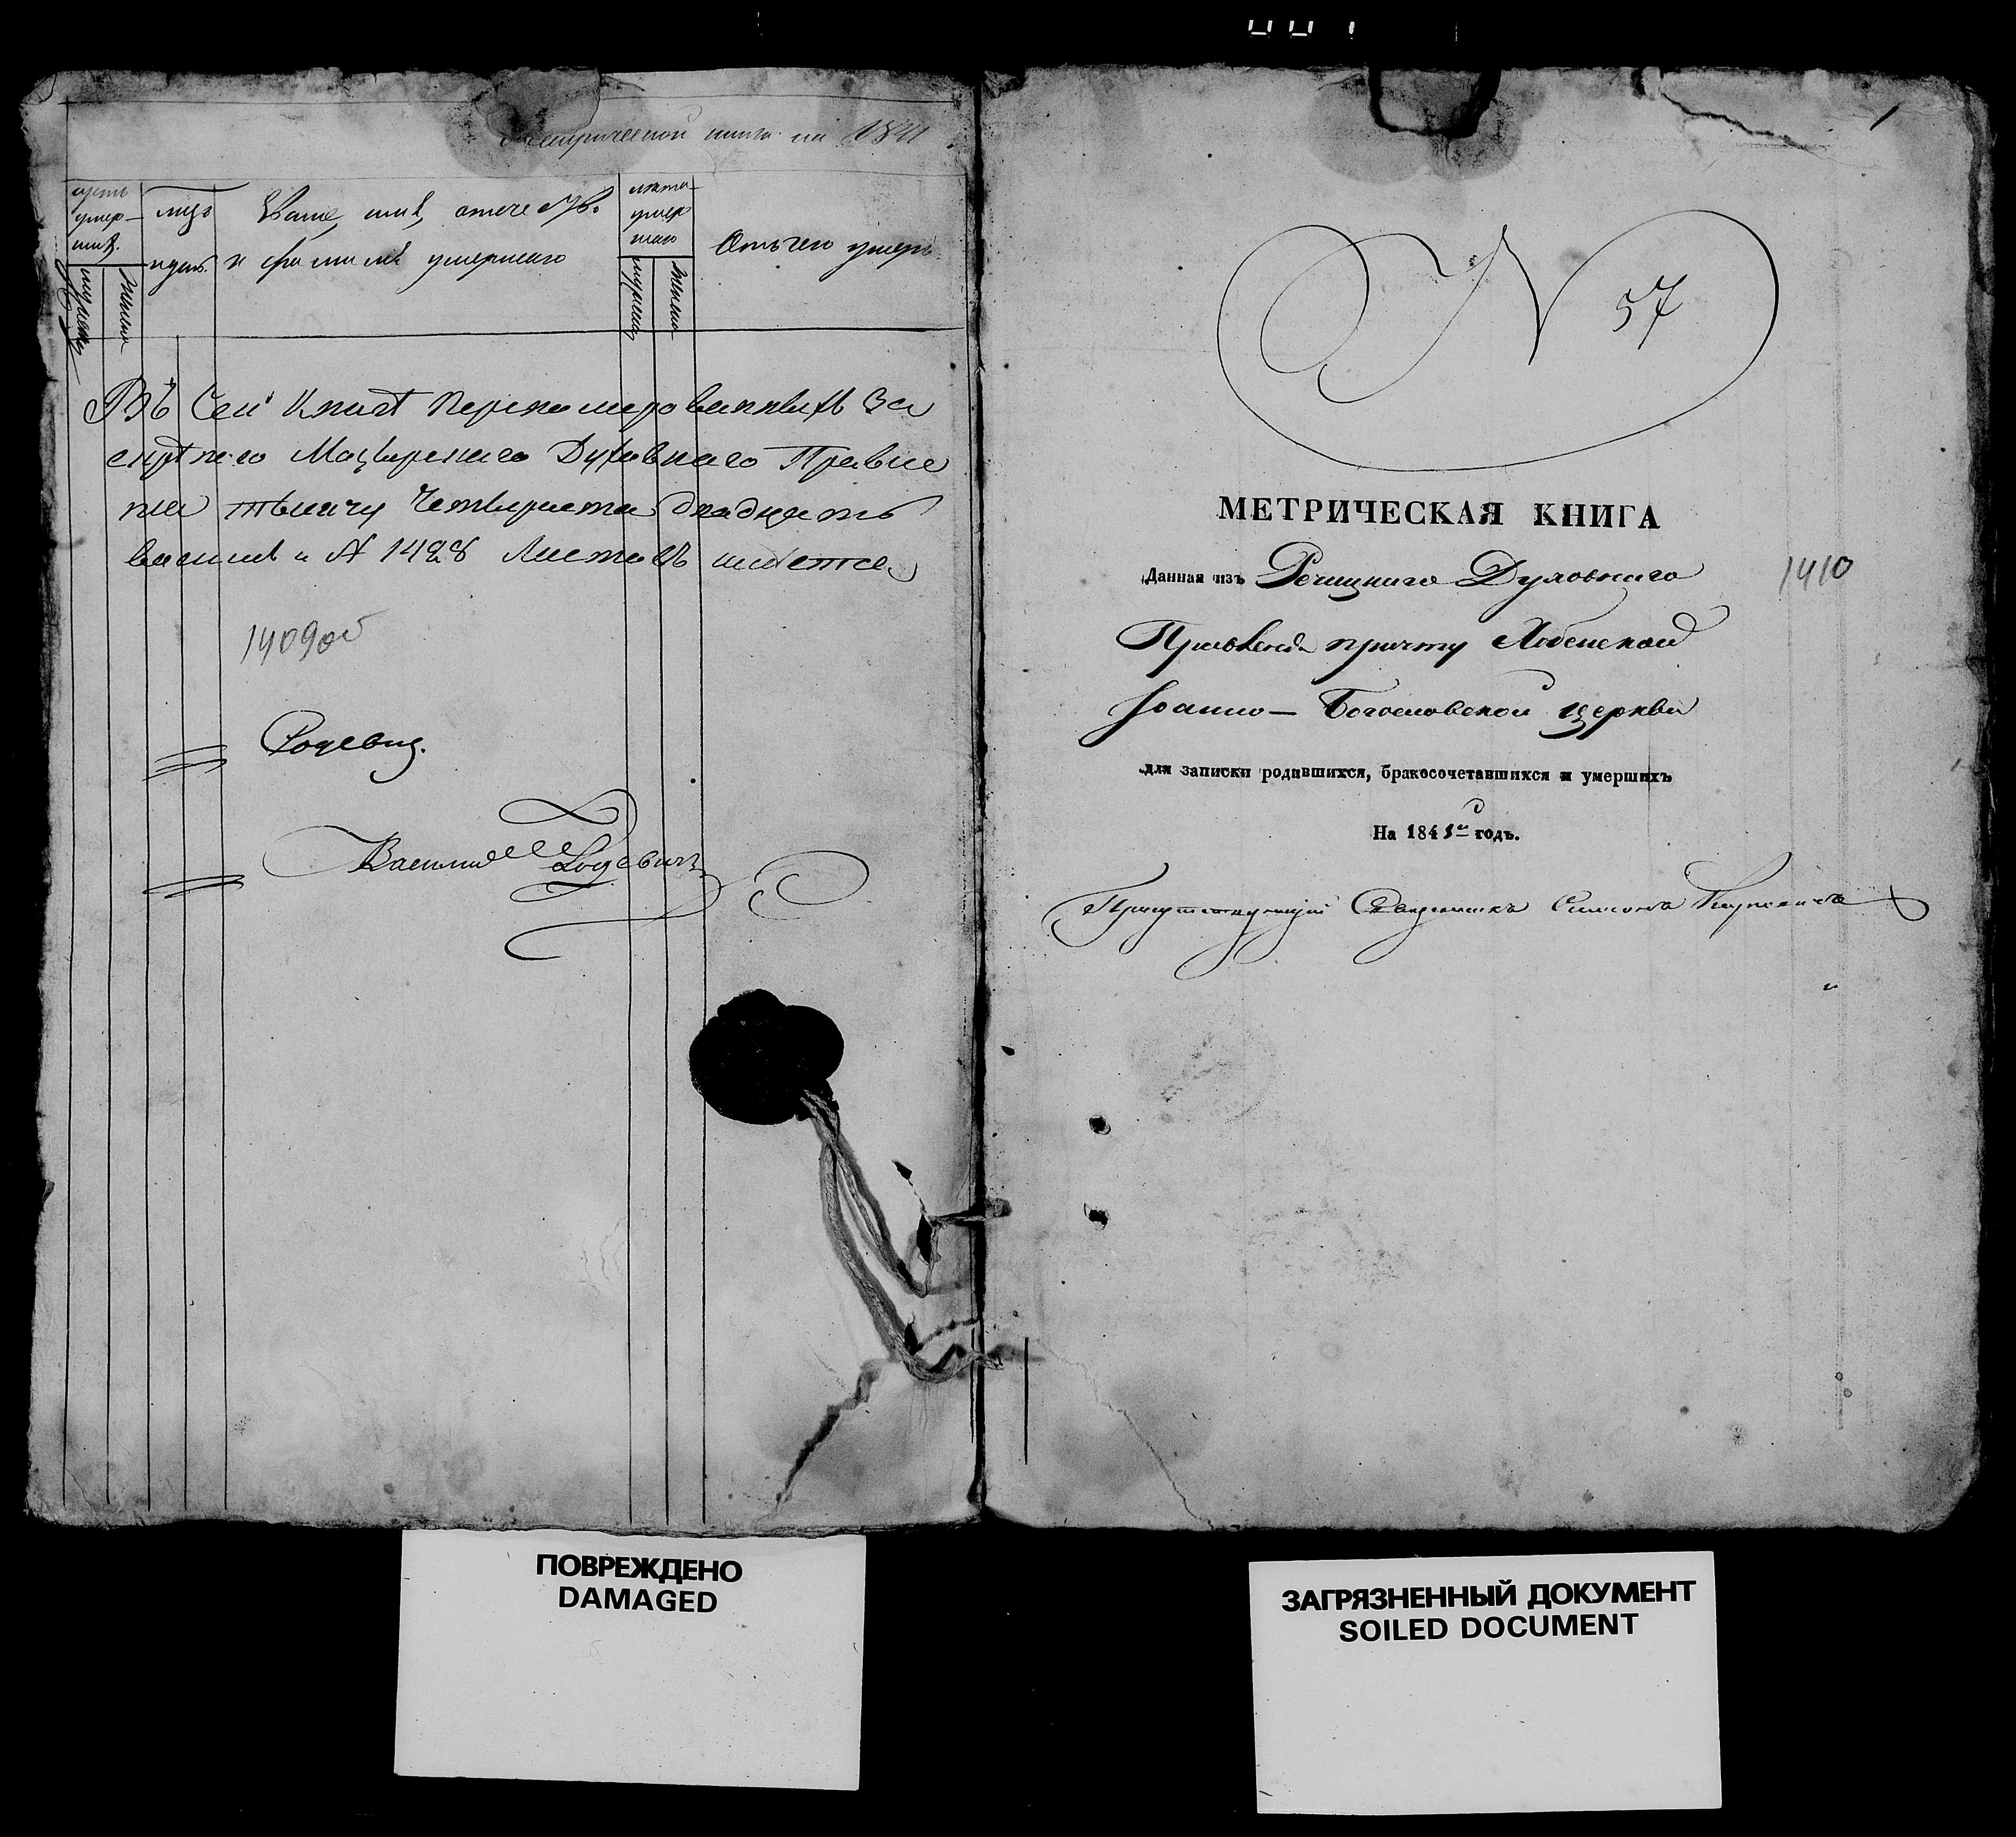 Метрической книги на 1841
щетъ умер-шихъ.
мужеска
женска
мѣсяцъ
и день.
Званіе, имя, отечество
и фамилія умершаго
лѣта умер шаго
мужеска
женска
Отъ чего умеръ
Въ Сей Книгѣ перенумерованныхъ За
скрѣпою Мозырскаго Духовнаго Правле
нія тысячу Четыреста двадцать
восемь и № 1428 Листовъ имѣется
1409об
Родевич.
Василій Родевичъ
1
N 57
МЕТРИЧЕСКАЯ КНИГА
Данная изъ Речицкаго Духовнаго
1410
Правленія причту
Іоанно- Богословской церкви
для записки родившихся, бракосочетавшихся и умершихъ
На 1841й годъ.
Присутствующій Священникъ Симонъ
ПОВРЕЖДЕНО
DAMAGED
ЗАГРЯЗНЕННЫЙ ДОКУМЕНТ
SOILED DOCUMENT